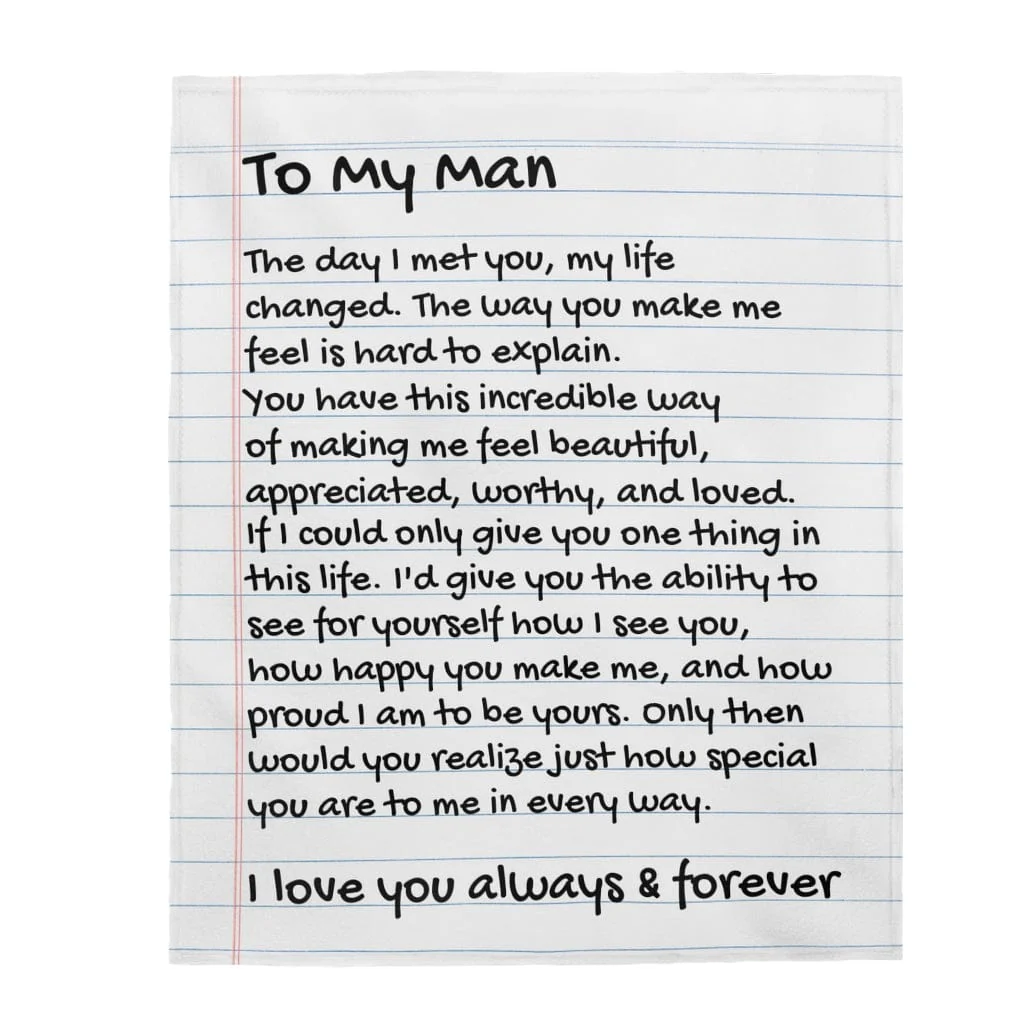 To My Man
The day I met you, my life
changed. The way you make me
feel is hard to explain.
You have this incredible way
of making me feel beautiful,
appreciated, worthy, and loved.
If I could only give you one thing in
this life. I'd give you the ability to
see for yourself how I see you,
how happy you make me, and how
proud I am to be yours. Only then
would you realize just how special
you are to me in every way.
I love you always & forever